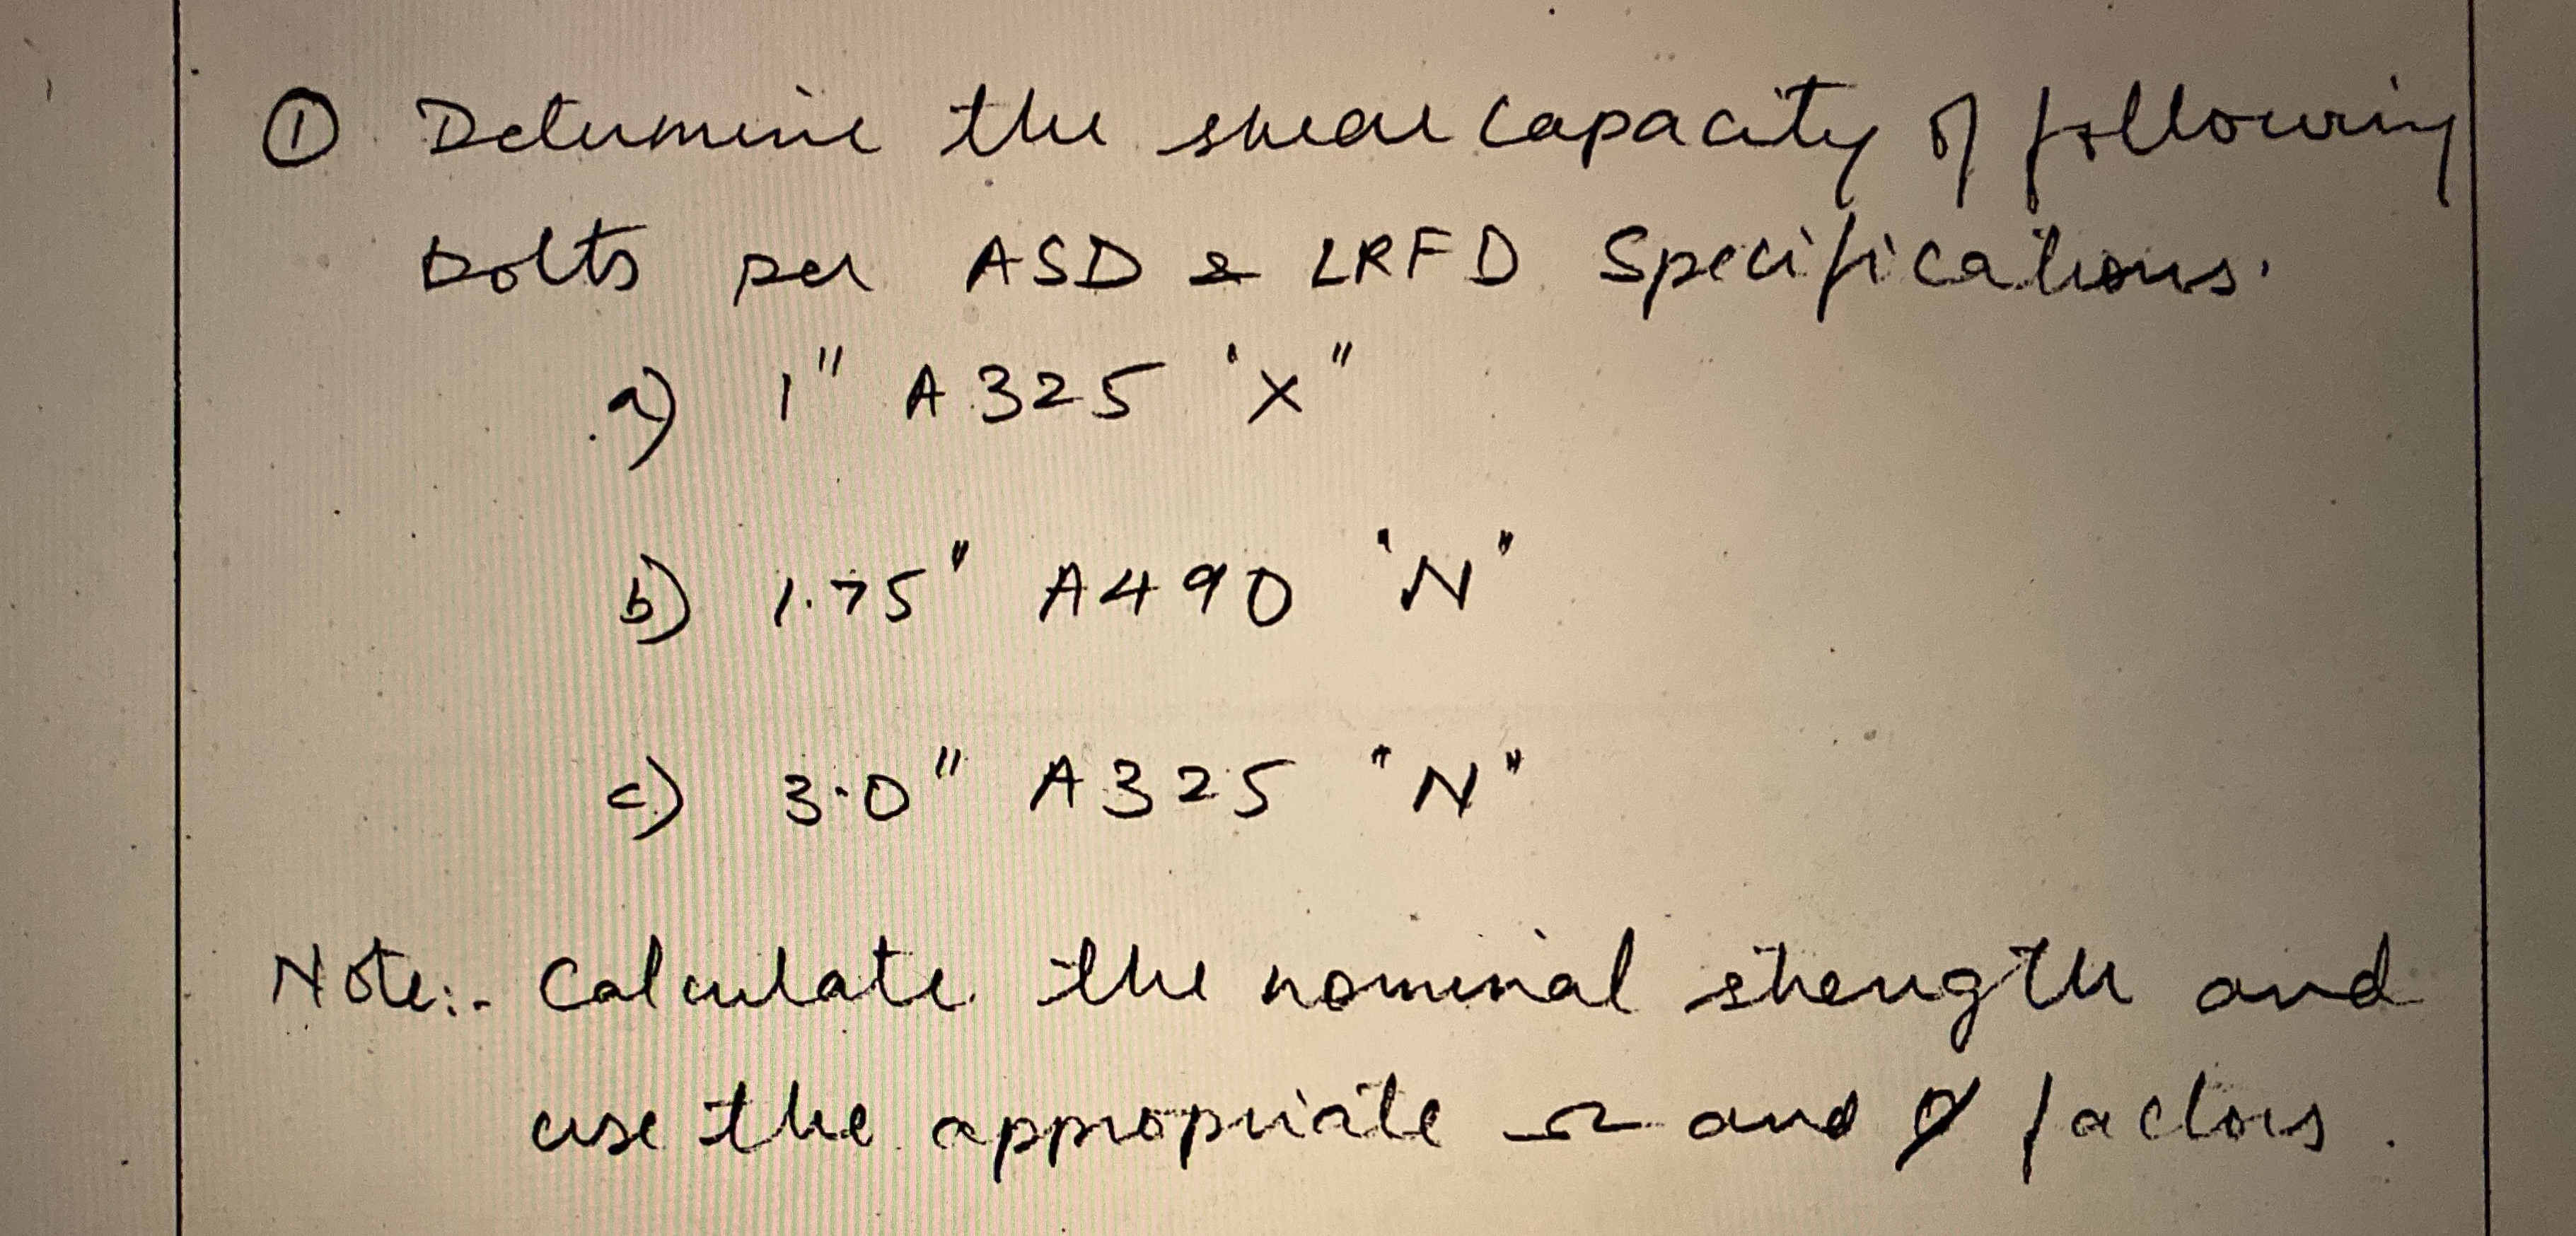 ① Determine the shear capacity of following
bolts per ASD & LRFD Specifications.
a) 1" A325 'X"
b) 1.75" A490 'N"
c) 3.0" A325 "N"
Note:- Calculate the nominal strength and
use the appropriate Ω and φ factors.